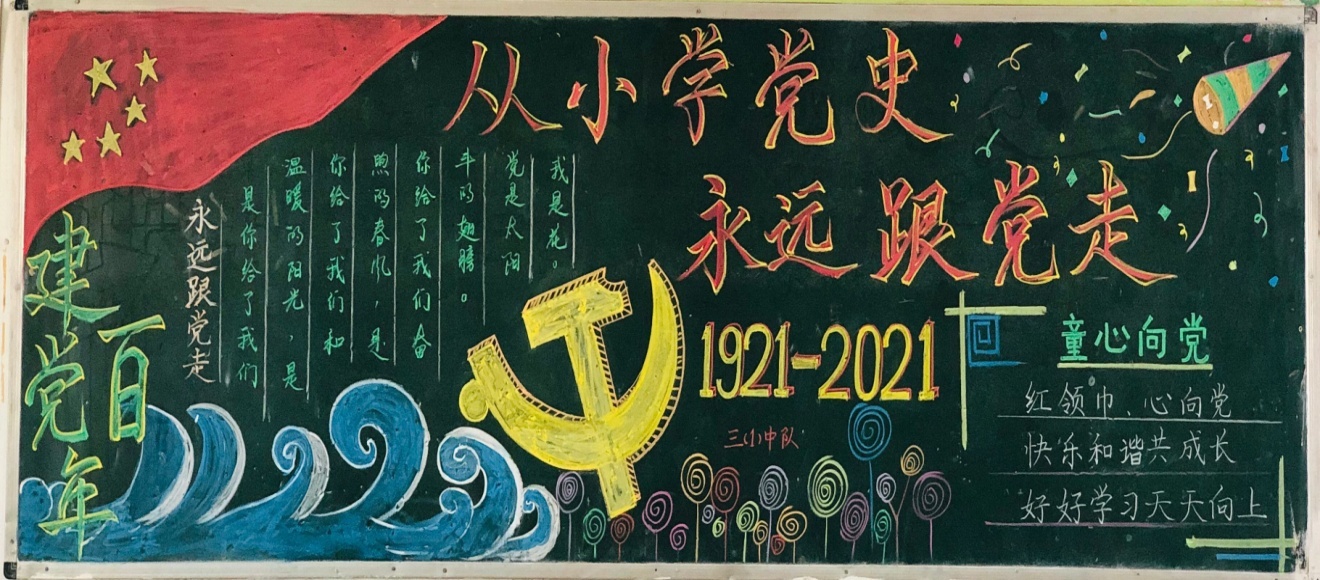 从小学党史
永远跟党走
建党
百年
永远跟党走
是你给了我们
温暖的阳光，是
你给了我们和
煦的春风，是
你给了我们奋
斗的翅膀。
党是太阳
我是花。
1921-2021
三(1)中队
童心向党
红领巾、心向党
快乐和谐共成长
好好学习天天向上